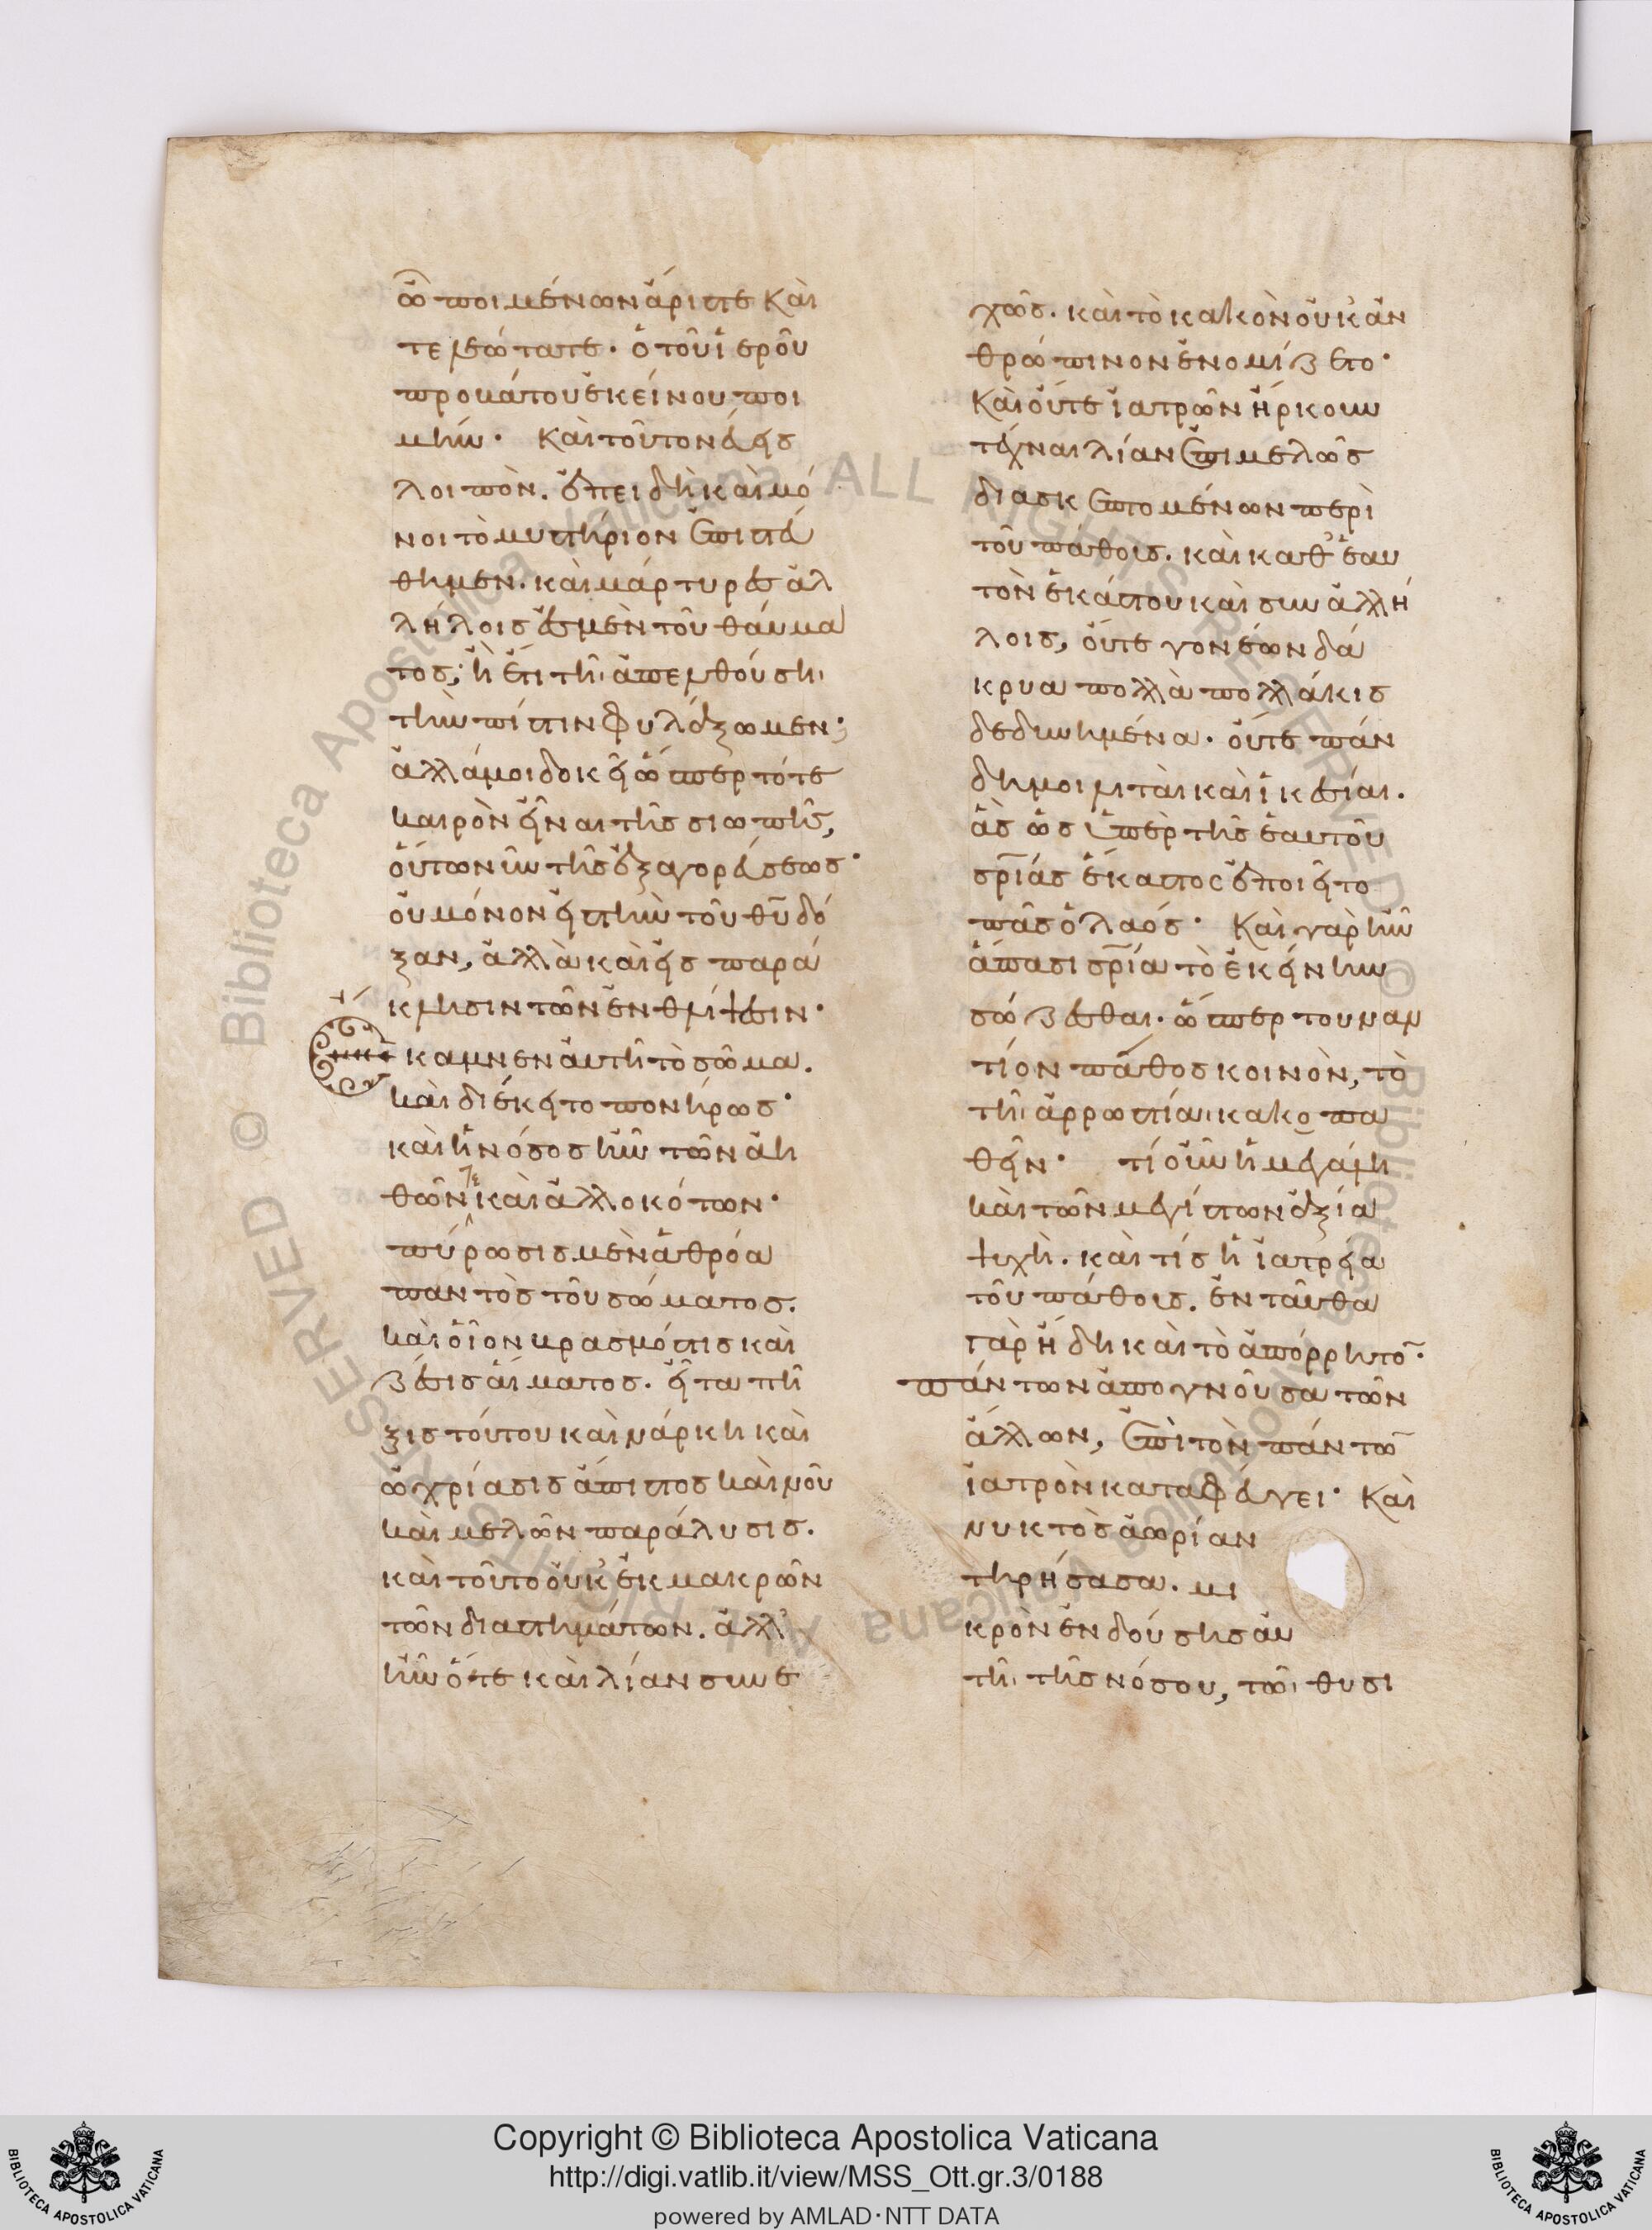 ὦ ποιμένων ἄριστε καὶ
τελεώτατε· ὁ τοῦ ἱεροῦ
προβάτου ἐκείνου ποι
μήν· Καὶ τοῦτον εἰς
λοιπὸν. ἐπειδὴ καὶ μό
νοι τὸ μυστήριον ἐπιστεύ
θημεν. καὶ μάρτυρες ἀλ
λήλοις ἐσμὲν τοῦ θαύμα
τος; ἢ ἔτι τῇ ἀπελθούσῃ
τὴν πίστιν φυλάξωμεν;
ἀλλά μοι δοκεῖ ὥσπερ τότε
καιρὸν εἶναι τῆς σιωπῆς,
οὕτω νῦν τῆς ἐξαγορεύσεως·
οὐ μόνον εἰς τὴν τοῦ θυ δό
ξαν, ἀλλὰ καὶ εἰς παρά
κλησιν τῶν ἐν θλίψεσιν·
Ἔκαμνεν αὐτῇ τὸ σῶμα.
καὶ διέκειτο πονήρως·
καὶ ἡ νόσος ἦν τῶν ἀη
θῶν τὲ καὶ ἀλλοκότων·
πύρωσις μὲν ἀθρόα
παντὸς τοῦ σώματος.
καὶ οἷον βρασμός τις καὶ
ζέσις αἵματος. εἶτα πῆ
ξις τούτου καὶ νάρκη καὶ
ὠχρίασις ἄπιστος καὶ νοῦ
καὶ μελῶν παράλυσις.
καὶ τοῦτο οὐκ ἐκ μακρῶν
τῶν διαστημάτων. ἀλλ'
ἦν ὅτε καὶ λίαν συνε
χῶς. καὶ τὸ κακὸν οὐκ ἀν
θρώπινον ἐνομίζετο·
Καὶ οὔτε ἰατρῶν ἤρκουν
τέχναι λίαν ἐπιμελῶς
διασκεπτομένων περὶ
τοῦ πάθους. καὶ καθ' ἑαυ
τὸν ἑκάστου καὶ σὺν ἀλλή
λοις, οὔτε γονέων δά
κρυα πολλὰ πολλάκις
δεδυνημένα· οὔτε πάν
δημοι λιταὶ καὶ ἱκεσίαι.
ἃς ὡς ὑπὲρ τῆς ἑαυτοῦ
σρίας ἕκαστος ἐποιεῖτο
πᾶς ὁ λαός· Καὶ γὰρ ἦν
ἅπασι σρία τὸ ἐκείνην
σώζεσθαι. ὥσπερ τουναν
τίον πάθος κοινὸν, τὸ
τῇ ἀρρωστίᾳ κακοπα
θεῖν· τί οὖν ἡ μεγάλη
καὶ τῶν μεγίστων ἀξία
ψυχὴ. καὶ τίς ἡ ἰατρεία
τοῦ πάθους. ἐνταῦθα
γὰρ ἤδη καὶ τὸ ἀπόρρητο̅·
πάντων ἀπογνοῦσα τῶν
ἄλλων, ἐπὶ τὸν πάντω̅
ἰατρὸν καταφεύγει· Καὶ
νυκτὸς ἀωρίαν
τηρήσασα. μι
κρὸν ἐνδούσης αὐ
τῇ τῆς νόσου, τῷ θυσι
Copyright © Biblioteca Apostolica Vaticana
http://digi.vatlib.it/view/MSS_Ott.gr.3/0188
powered by AMLAD·NTT DATA